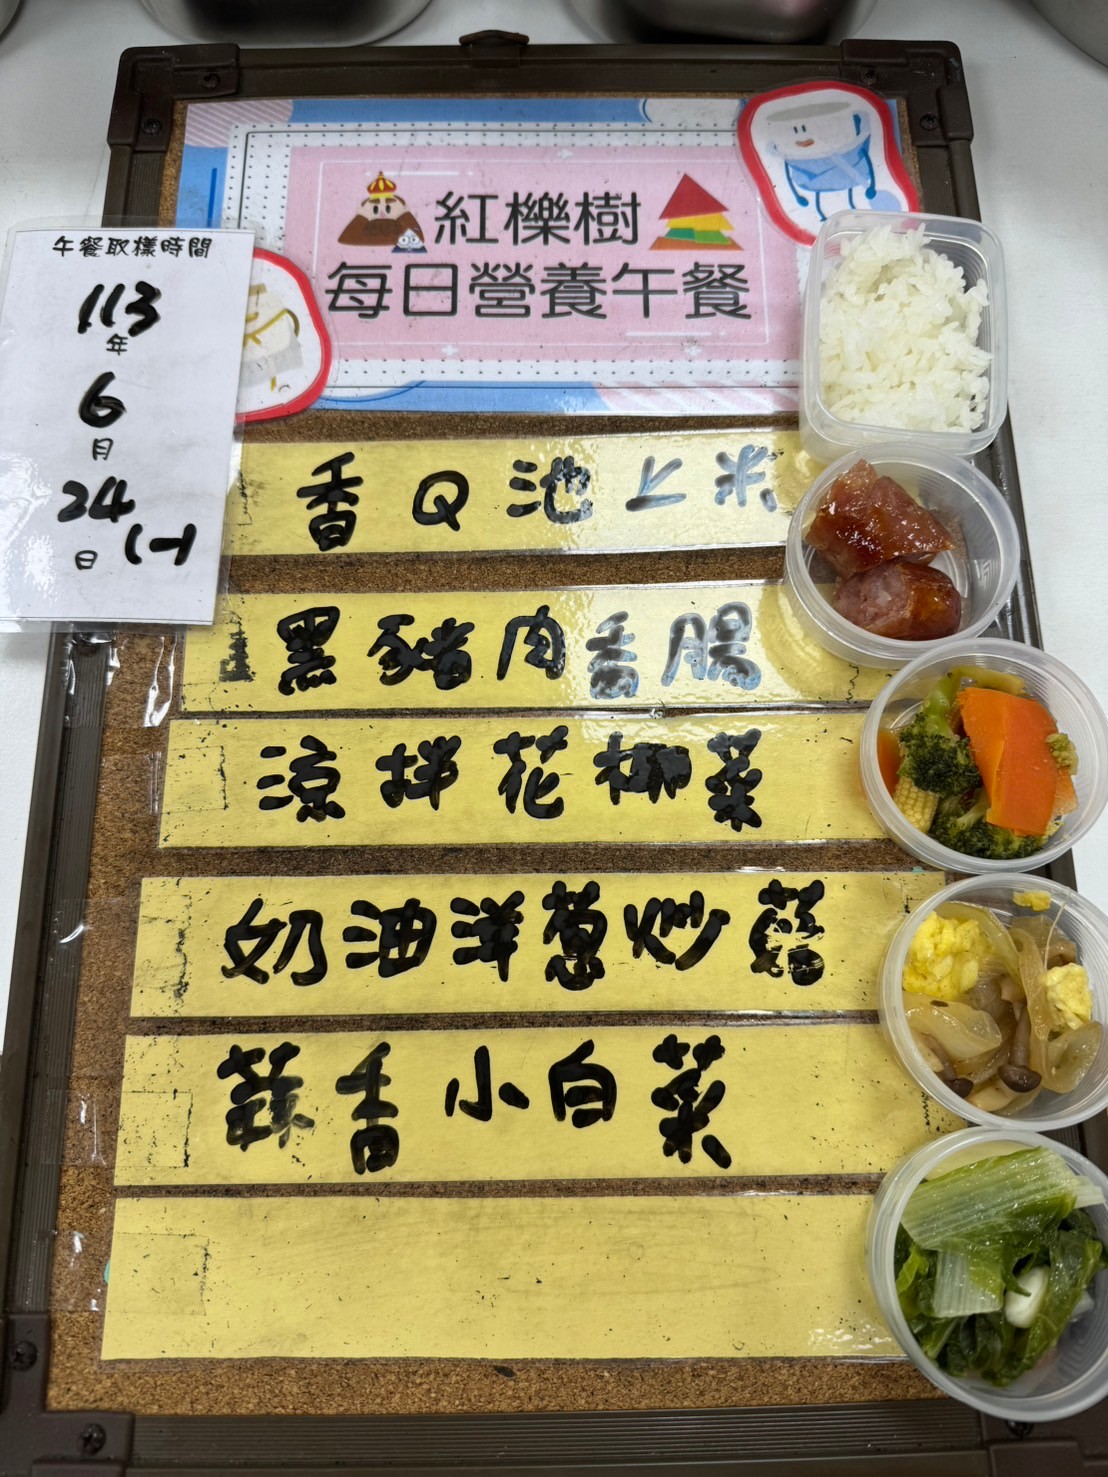 紅櫟樹
每日營養午餐
午餐取樣時間
113
年
6
月
24
日 (一)
香Q池上米
黑豬肉香腸
涼拌花椰菜
奶油洋蔥炒菇
蒜香小白菜